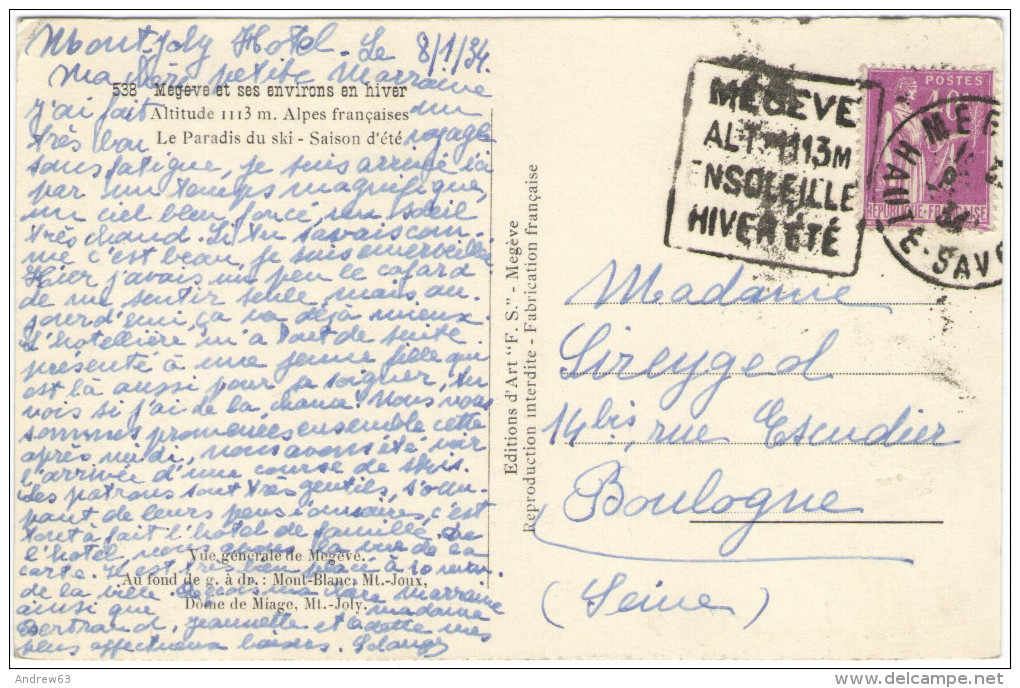 Montjoly Hotel. Le 8/1/34.
Ma chère petite Marraine
538 Megève et ses environs en hiver
Altitude 1113 m. Alpes françaises
Le Paradis du ski - Saison d'été
j'ai fait un
très bon voyage
sans fatigue, je suis arrivée ici
par un temps magnifique,
un ciel bleu foncé, un soleil
très chaud. Si tu savais com-
me c'est beau, je suis émerveillée
Hier j'avais un peu le cafard
de me sentir seule mais au-
jourd'hui, ça va déjà mieux.
L'hotellière m'a tout de suite
présenté à une jeune fille qui
est là aussi pour se soigner, tu
vois si j'ai de la chance. Nous nous
sommes promenées ensemble cette
après midi, nous avons été voir
l'arrivée d'une course de skis.
Les patrons sont très gentils, s'occu-
pant de leurs pensionnaires, c'est
tout à fait l'hôtel de famille. De
l'hotel nous avons la vue de la
carte. Il est très bien placé à 10 min.
de la ville. Reçois ma chère Marraine
ainsi que madame
Bertrand, Jeannette et Odette mes
plus affectueux baisers. Solange
Vue générale de Megève.
Au fond de g. à dr.: Mont-Blanc, Mt.-Joux,
Dôme de Miage, Mt.-Joly.
Editions d'Art "F. S." - Megève
Reproduction interdite - Fabrication française
MEGÈVE
ALT. 1113M
ENSOLEILLE
HIVER ÉTÉ
POSTES
REPUBLIQUE FRANÇAISE
HAUTE-SAVO
34
Madame
Sireyged
14 bis, rue Escudier
Boulogne
(Seine)
Andrew63
delcampe.net